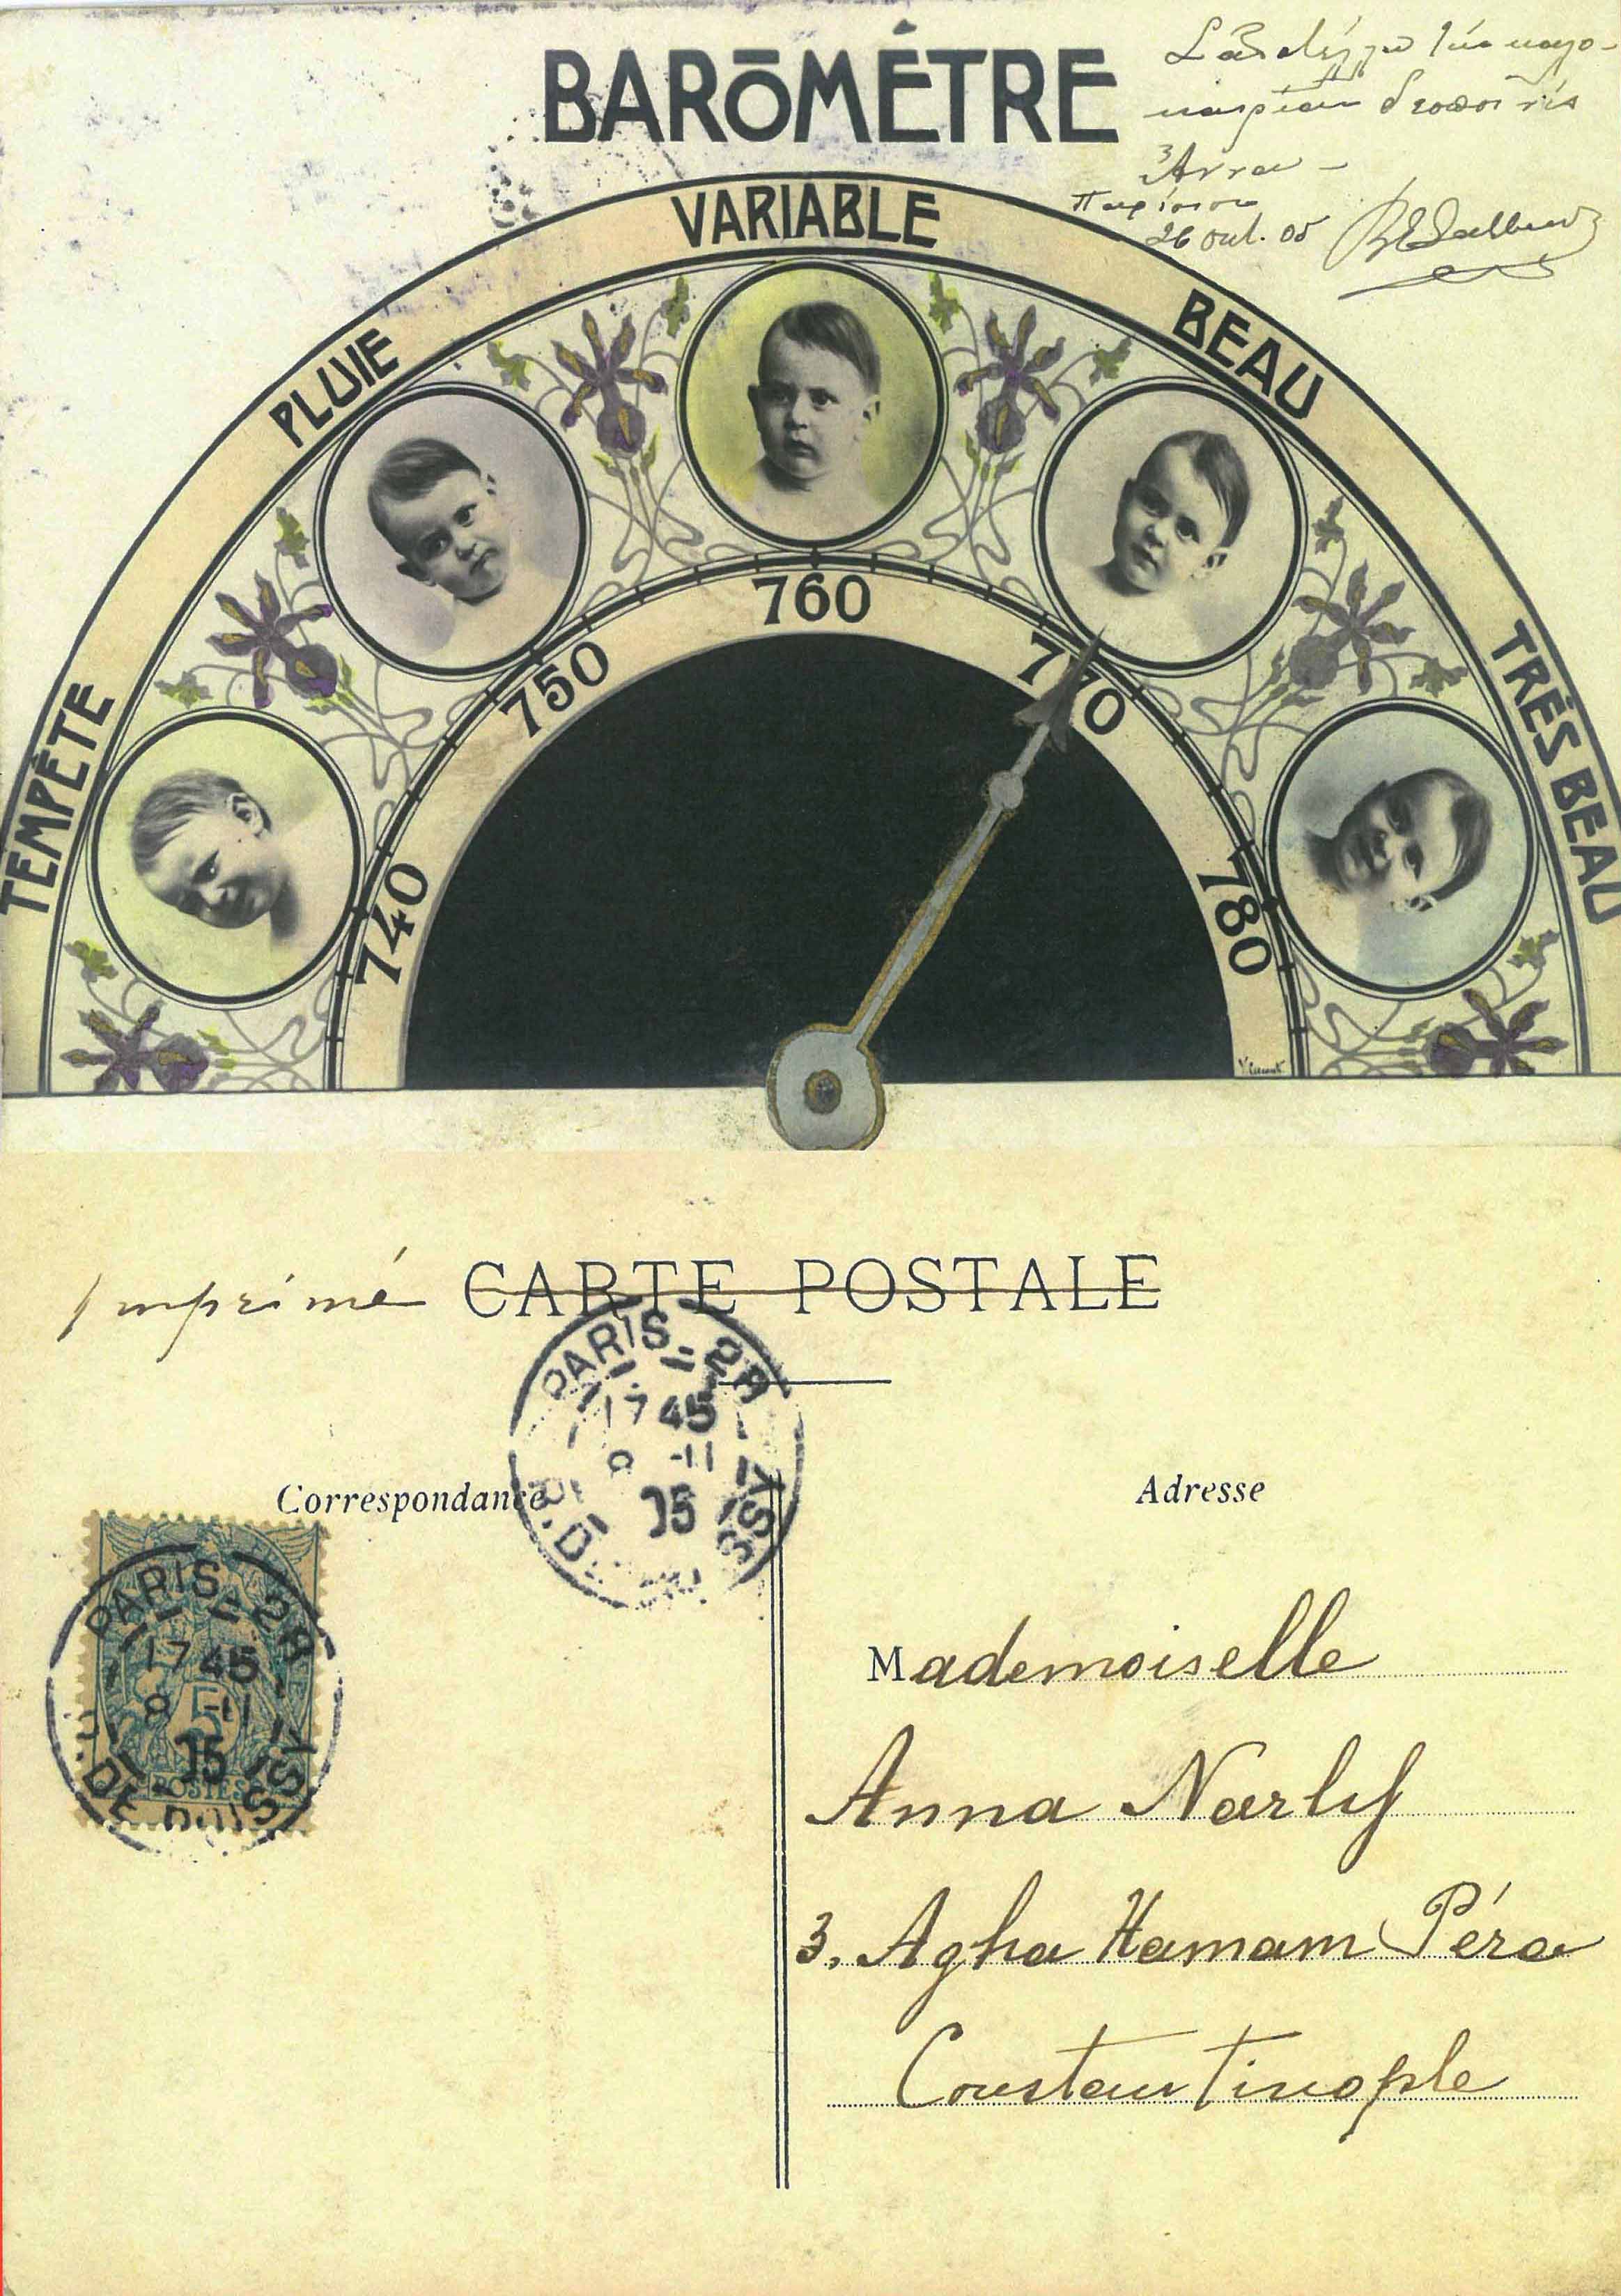 BARŌMÉTRE
Ἄννα –
26 Oct. 05
TEMPÊTE
PLUIE
VARIABLE
BEAU
TRÈS BEAU
740
750
760
770
780
Imprimé
CARTE POSTALE
PARIS
17 45
8 -11
05
Correspondance
Adresse
PARIS
17 45
8 -11
05
5
POSTES
Mademoiselle
Anna Narly
3. Agha Hamam Péra
Constantinople